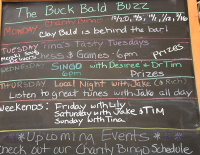 The Buck Bald Buzz
MONDAY Charity Bingo
Clay Bald is behind the bar!
TUESDAY Tina's Tasty Tuesdays
Chess & Games 6pm Prizes
WEDNESDAY BINGO with Desiree & Dr Tim
6pm Prizes
THURSDAY Local Night with Jake (& Rich)
Listen to great tunes with Jake all day
Weekends: Friday with Lily
Saturday with Jake & TIM
Sunday with Tina
*Upcoming Events*
Check out our Charity Bingo Schedule